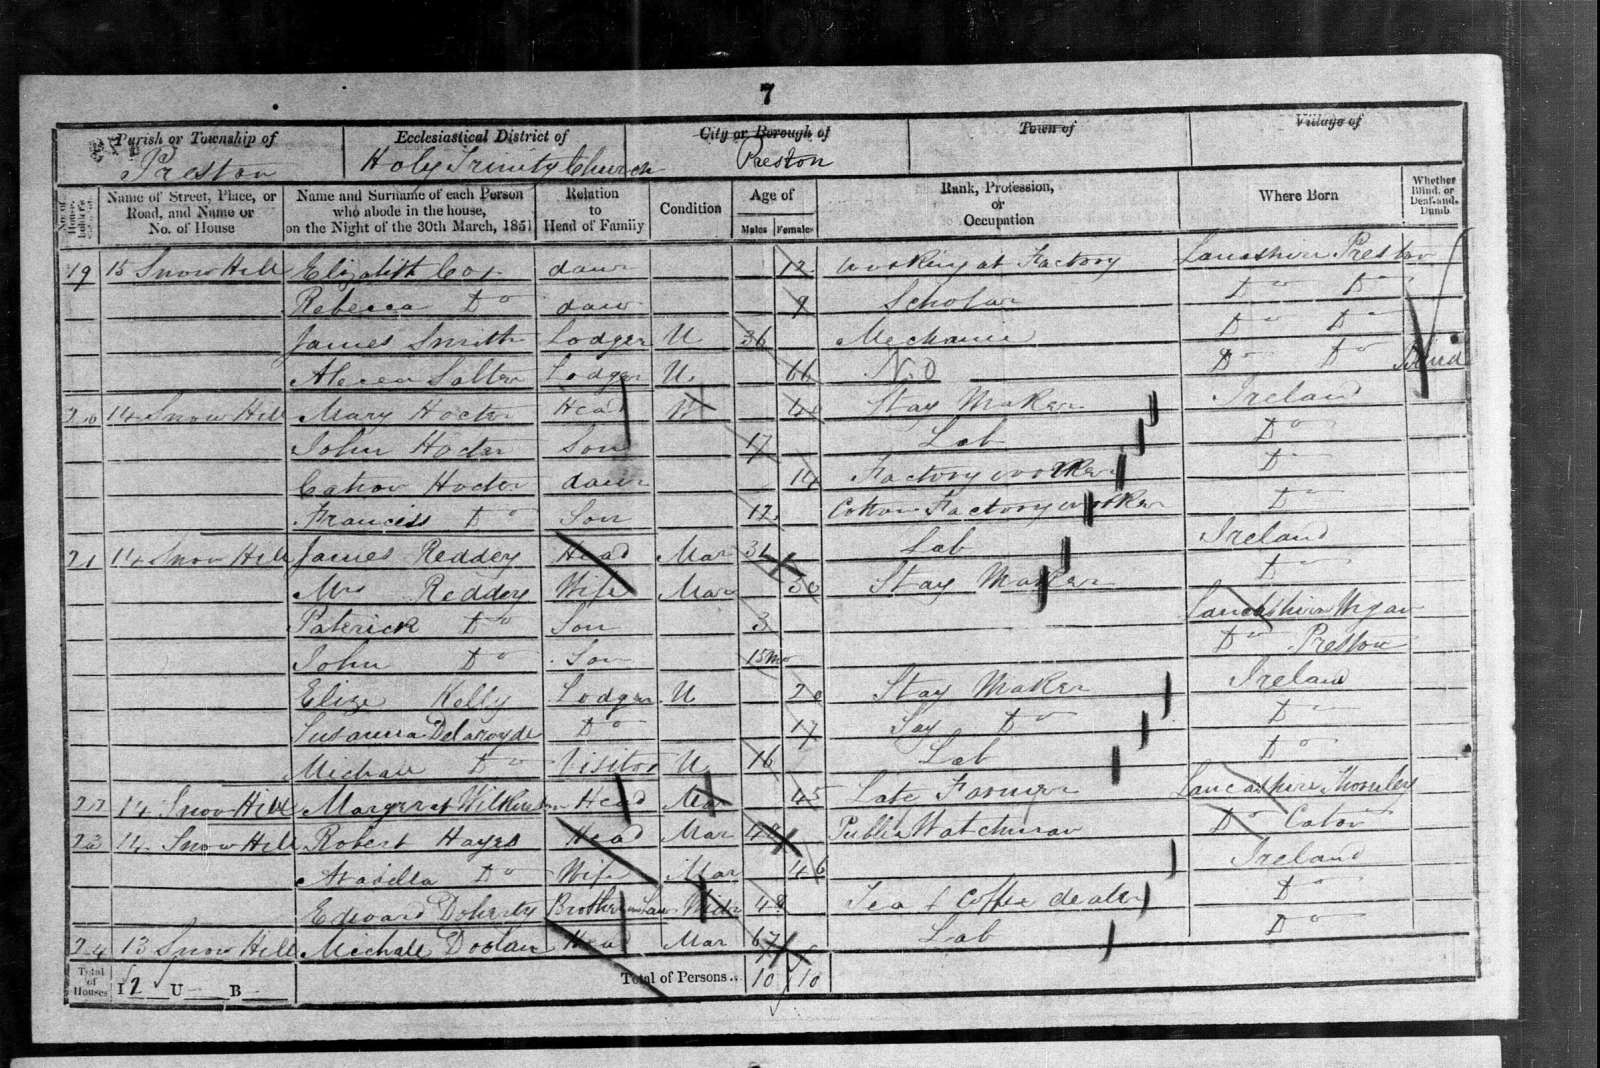 7
Parish or Township of Ecclesiastical District of City or Borough of Town of Village of
Preston Holy Trinity Church Preston
No. of House- holder's Schedule Name of Street, Place, or Road, and Name or No. of House Name and Surname of each Person who abode in the house, on the Night of the 30th March, 1851 Relation to Head of Family Condition Age of Males Females Rank, Profession, or Occupation Where Born Whether Blind, or Deaf-and-Dumb
19 15 Snow Hill Elizabith Cox daur 12 working at Factory Lancashire Preston
Rebecca Do daur 9 Scholar Do Do
James Smith Lodger U 36 Mechanic Do Do
Salter Lodger U 66 Do Do Blind
20 14 Snow Hill Mary Hocter Head W 40 Stay Maker Ireland
John Hocter Son 17 Lab Do
Hocter daur 14 Factory worker Do
Franciss Do Son 12 Cotton Factory worker Do
21 14 Snow Hill James Reddey Head Mar Lab Ireland
Mrs Reddey Wife Mar 30 Stay Maker Do
Paterick Do Son 3 Lancashire Wigan
John Do Son 15 mo Do Preston
Elize Kelly Lodger U 20 Stay Maker Ireland
Susanna Delaroyde Do 17 Say Do Do
Michael Do Visitor U 16 Lab Do
22 14 Snow Hill Margeret Head Mar 45 Late Farmer Lancashire
23 14 Snow Hill Robert Hayes Head Mar 48 Public Watchman Do Caton
Do Wife Mar 46 Ireland
Edward Doherty Brother in Law Widr 48 Tea & Coffee dealer Do
24 13 Snow Hill Michale Doolan Head Mar 67 Lab Do
Total of Houses I 2 U B Total of Persons.. 10 10